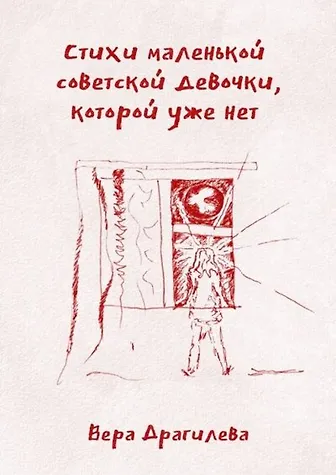 Стихи маленькой
советской девочки,
которой уже нет
Вера Драгилева